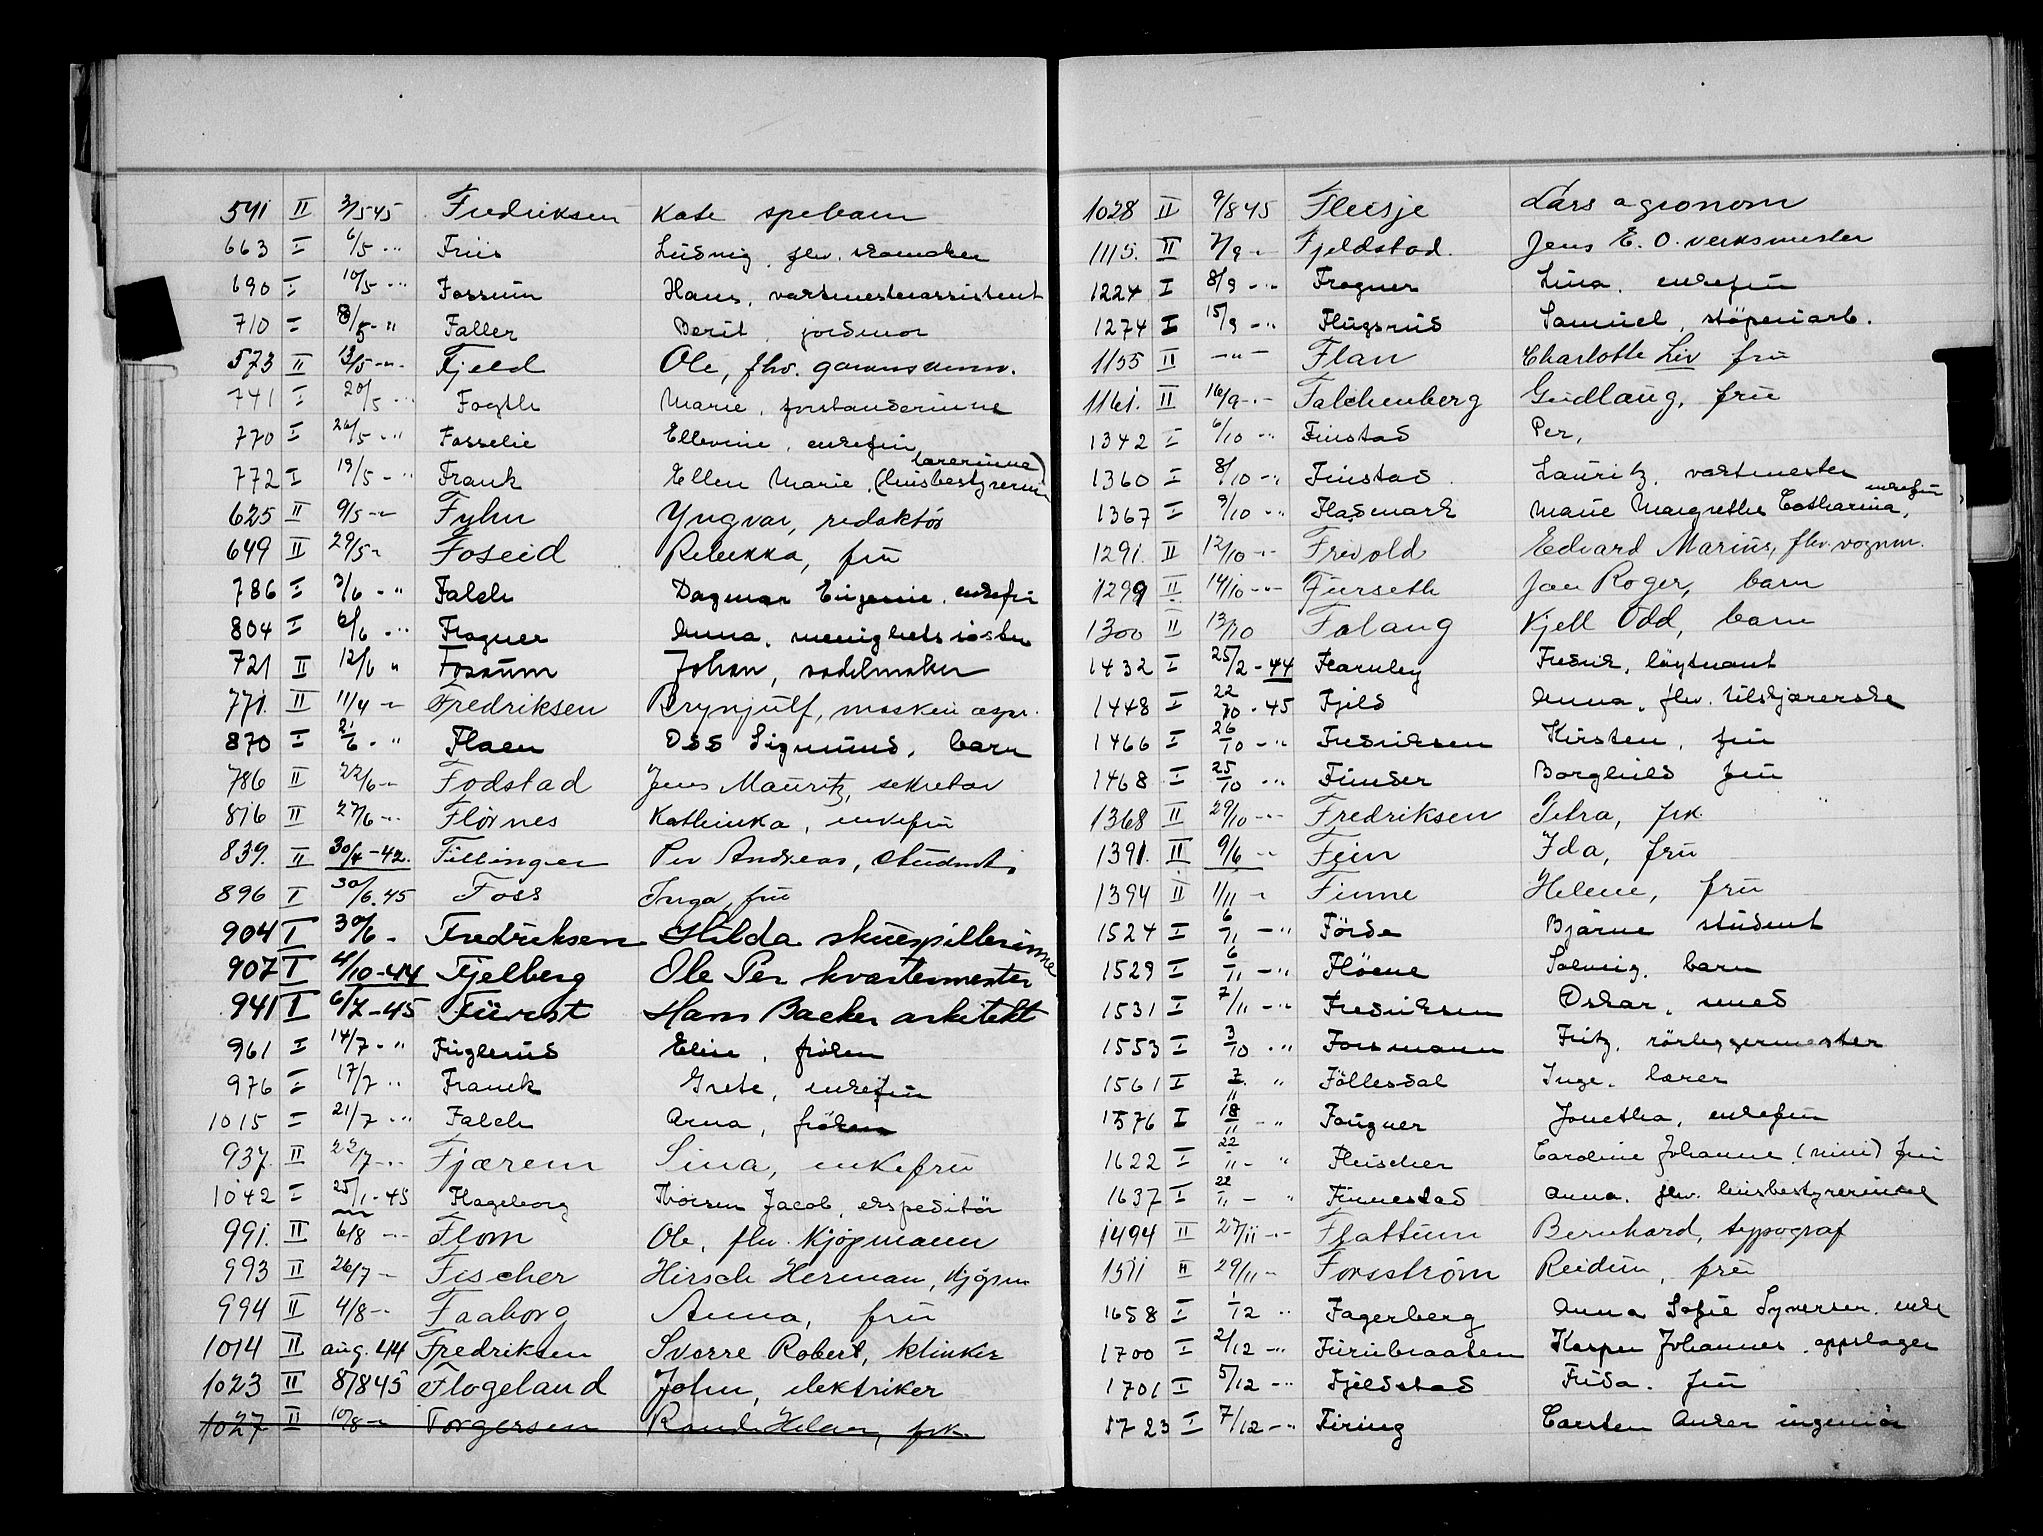 541 II 3/5 45 Fredriksen Kate spebarn
663 I 6/5 -"- Friis Ludvig, fhv. skomaker
690 I 10/5 -"- Fossum Hans, vaktmesterassistent
710 I 8/5 -"- Faller Berit, jordmor
573 II 13/5 -"- Fjeld Ole, fhv.
741 I 20/5 -"- Fogth Marie, forstanderinne
770 I 26/5 -"- Fosselie Ellevine, enkefru
772 I 19/5 -"- Frank Ellen Marie, (husbestyrerinne lærerinne)
625 II 9/5 -"- Fyhn Yngvar, redaktör
649 II 29/5 - Foseid Rebekka, frü
786 I 3/6 -" Falch Dagmar Eugenie, enkefru
804 I 6/6 -" Frogner Anna, menighetssöster
721 II 12/6 " Fossum Johan, sadelmaker
771. II 11/4 - Fredriksen Brynjulf, maskin aspr.
870 I 2/6 -" Flaen Odd Sigmund, barn
786 II 22/6 - Fodstad Jens Mauritz, sekretær
816 II 27/6 -"- Flörnes Kathinka, enkefru
839. II 30/4 -42. Fillinger Per Andreas, student
896 I 30/6.45 Foss Inga, fru
904 I 30/6 - Fredriksen Hilda skuespillerinne
907 I 4/10-44 Fjelberg Ole Per kvartermester
941 I 6/7-45 Fürst Hans Backer arkitekt
961 I 14/7 -" Fuglerud Elise, fröken
976 I 17/7 " Franck Grete, enkefru
1015 I 21/7 -" Falch Arna, fröken
937. II 22/7 -"- Fjærem Sina, enkefru
1042 I 25/1-45 Flageborg Thorsen Jacob, ekspeditör
991. II 6/8 -"- Flom Ole, fhv. kjøpmann
993 II 26/7 - Fischer Hirsch Herman, kjøpm
994 II 4/8 - Faaborg Anna, frü
1014 II aug. 44 Fredriksen Sverre Robert, klinker
1023 II 8/8 45 Flogeland John, elektriker
1027 II 10/8 - Torgersen Randi Helene, frk.
1028 II 9/8 45 Fleisje Lars agronom
1115. II 7/9 - Fjeldstad. Jens E. O. verksmester
1224 I 8/9 -"- Frogner Lina, enkefru
1274 I 15/9 -"- Flugsrud Samuel, støperiarb.
1155 II -"- Flan Charlotte Liv fru
1161. II 16/9 -"- Falchenberg Gudlaug, frü
1342 I 6/10 -" Finstad Per,
1360 I 8/10 -" Finstad Lauritz, vaktmester
1367 I 9/10 -" Fladmark Marie Margrethe Catharina, enkefru
1291. II 12/10 -"- Frivold Edvard Marius, fhv. vognm.
1299 II 14/10 -"- Furseth Jan Roger, barn
1300 II 13/10 Falang Kjell Odd, barn
1432 I 25/2 - 44 Fearnley Fredrik, löytnant
1448 I 22/10 - 45 Fjeld Anna, fhv. tilskjærerske
1466 I 26/10 -" Fredriksen Kirsten, fru
1468 I 25/10 " Funder Borghild fru
1368 II 29/10 -"- Fredriksen Petra, frk.
1391. II 9/6 -" Fein Ida, frü
1394 II 1/11 - Finne Helene, frü
1524 I 6/11 -" Förde Bjarne student
1529 I 6/11 -" Flöene Solveig, barn
1531 I 7/11 -" Fredriksen Oskar, smed
1553 I 3/10 " Forsmann Fritz, rörleggermester
1561 I 7/11 " Föllesdal Inge, lærer
1576 I 18/11 -" Fougner Jonetha, enkefru
1622 I 22/11 - " Fleischer Caroline Johanne (Mimi) fru
1637 I 22/11 - " Finnestad Anna, fhv. husbestyrerinne
1494 II 27/11 -"- Flattum Bernhard, typograf
1511 II 29/11 - Forsström Reidun, frü
1658 I 1/12 " Fagerberg Anna Sofie Syversen, enke
1700 I 2/12 -" Furubraaten Kasper Johannes, oppslager
1701 I 5/12 -" Fjeldstad Frida, fru
1723 I 7/12 -" Firing Carsten Anker ingeniör